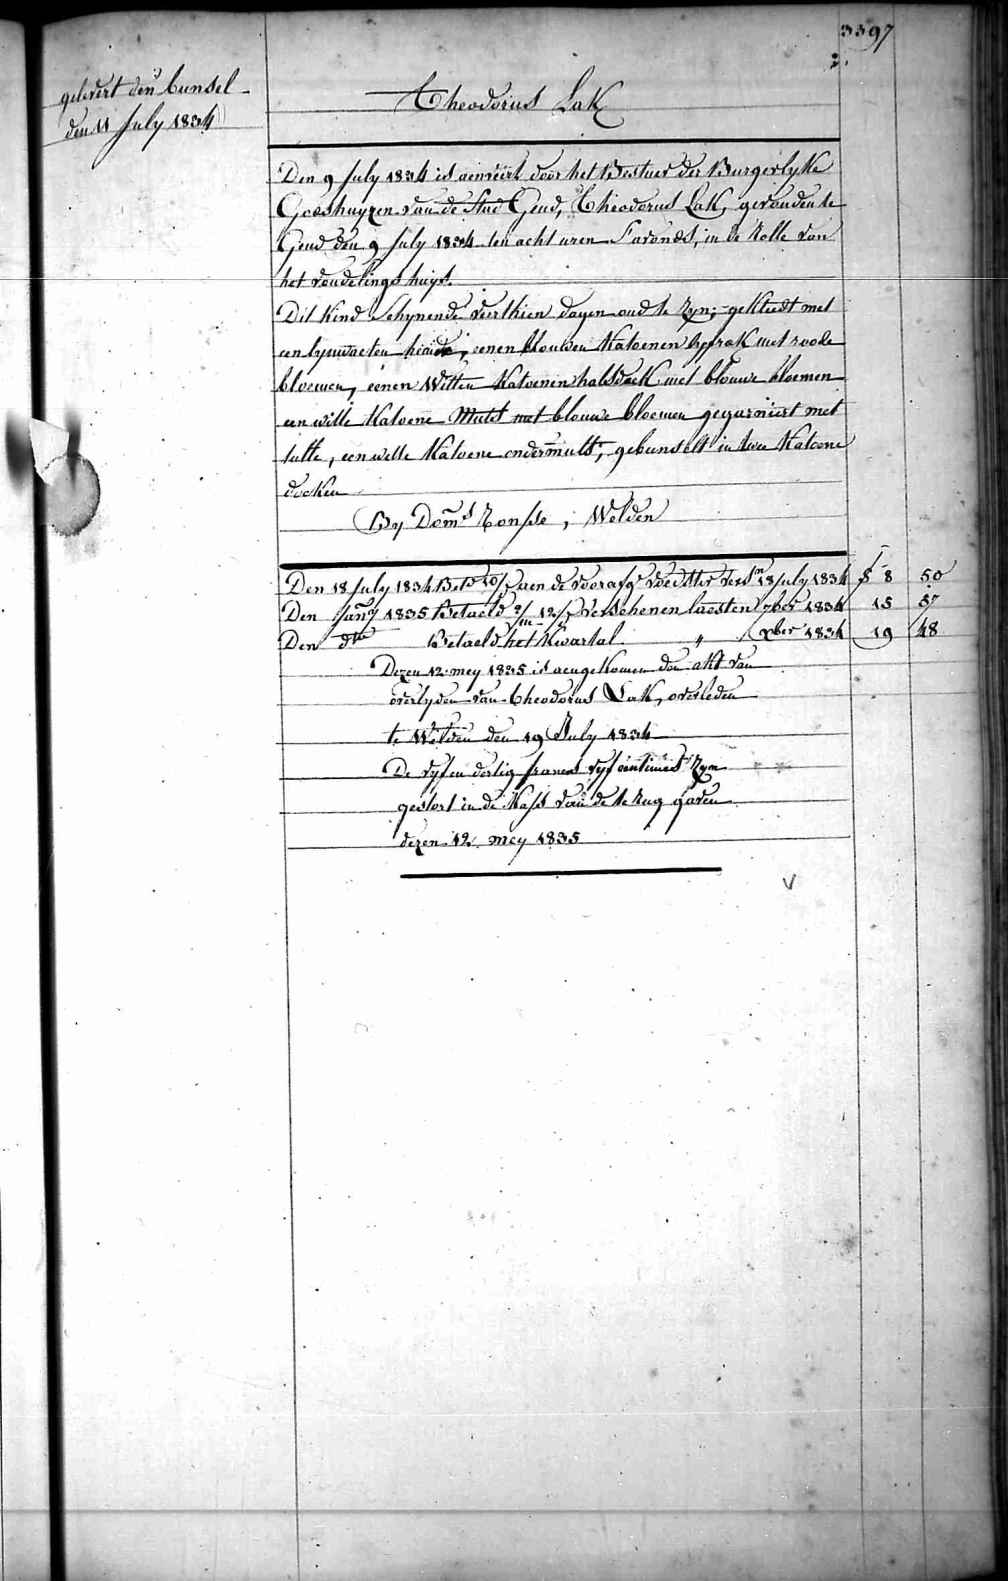 3397
gelevert den bunsel
den 11 July 1834
Theodorus Lak
Den 9 July 1834 is aenveirt door het Bestuer der Burgerlyke
Godshuyzen van de Stad Gend, Theodorus Lak, gevonden te
Gend den 9 July 1834 ten acht uren s'avonds, in de Rolle van
het vondelings huys.
Dit kind schynende veerthien dagen oud te zyn; gekleedt met
een lynwaeten hemde, eenen blouwen Katoenen bepprok met roode
bloemen, eenen Witten Katoenen halsdoek met blouwe bloemen
een witte Katoene Muts met blouwe bloemen gegarniert met
tutte, een witte Katoene ondermuts, gebunselt in twee Katoene
doeken
By Dom.s Ronsse, Welden
Den 18 July 1834 aen de 18 July 1834 8 50
Den Jany 1835 Betaeld verschenen laesten 7ber 1834 15 57
Den dto Betaeld het Kwartal " Xber 1834 19 48
Dezen 12 mey 1835 is aengekomen den akt van
overlyden van Theodorus Lak, overleden
te Welden den 19 July 1834
De vyf en dertig francs vyf centimes Zyn
gestort in de Kass van de te rug gaven
dezen 12 mey 1835